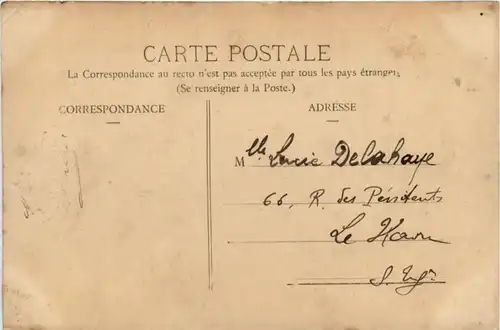 CARTE POSTALE
La Correspondance au recto n'est pas acceptée par tous les pays étrangers
(Se renseigner à la Poste.)
CORRESPONDANCE
ADRESSE
Mlle Lucie Delahaye
66, R. des Pénitents
Le Havre
S. Infre